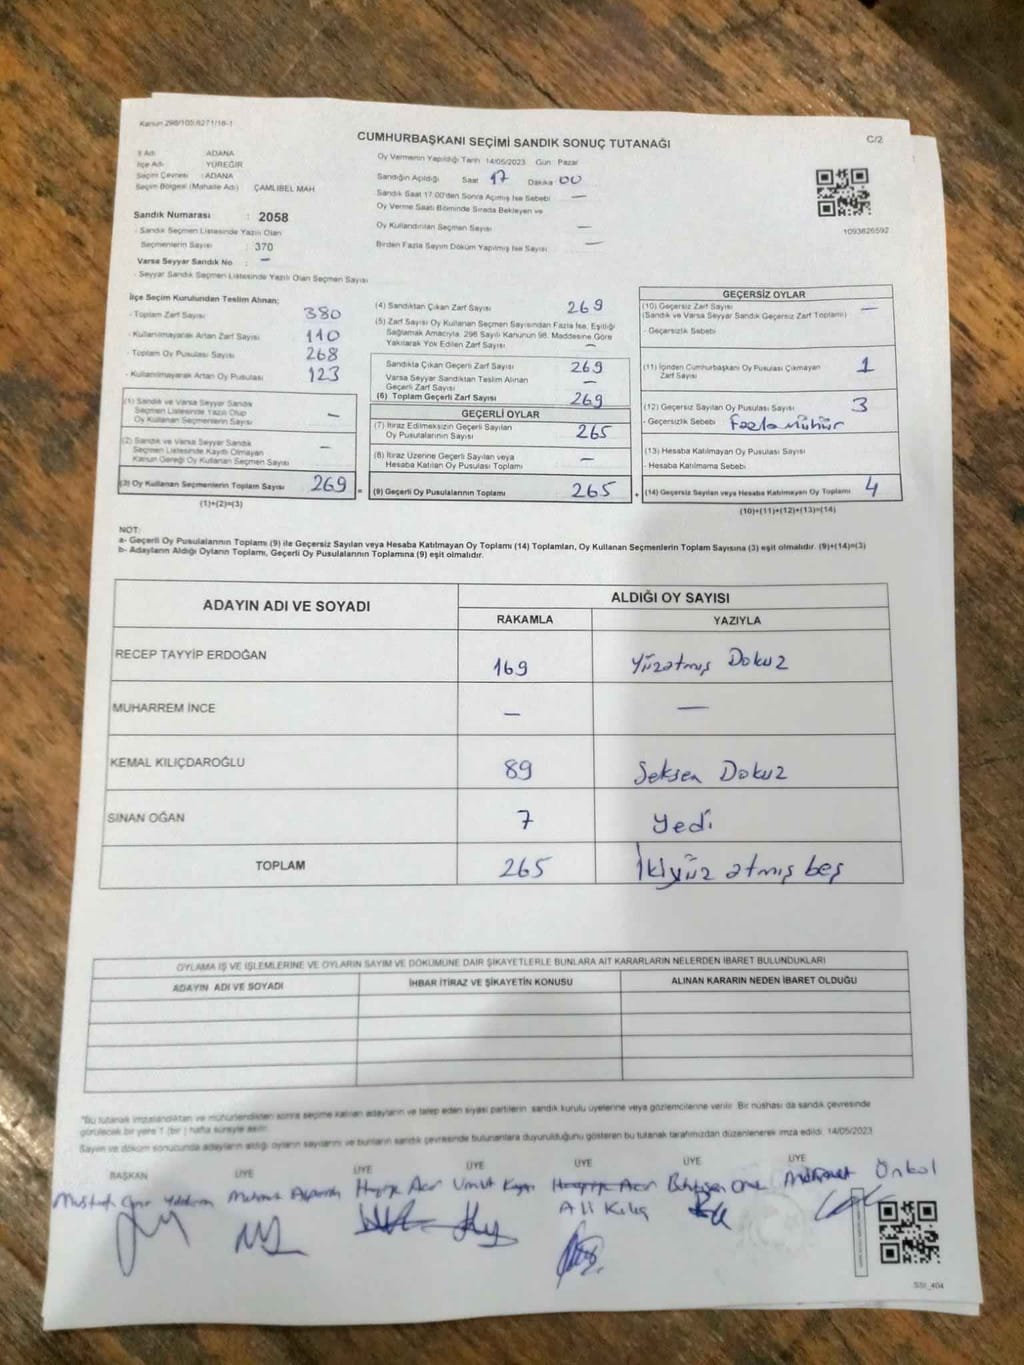 Kanun 298/105.6271/16-1
CUMHURBAŞKANI SEÇİMİ SANDIK SONUÇ TUTANAĞI
C/2
İl Adı : ADANA
İlçe Adı : YÜREĞİR
Seçim Çevresi : ADANA
Seçim Bölgesi (Mahalle Adı) : ÇAMLIBEL MAH
Sandık Numarası : 2058
- Sandık Seçmen Listesinde Yazılı Olan
Seçmenlerin Sayısı : 370
Varsa Seyyar Sandık No : –
- Seyyar Sandık Seçmen Listesinde Yazılı Olan Seçmen Sayısı
Oy Vermenin Yapıldığı Tarih 14/05/2023 Gün: Pazar
Sandığın Açıldığı Saat 17 Dakika 00
Sandık Saat 17.00'den Sonra Açılmış İse Sebebi –
Oy Verme Saati Bitiminde Sırada Bekleyen ve
Oy Kullandırılan Seçmen Sayısı –
Birden Fazla Sayım Döküm Yapılmış İse Sayısı –
1093826592
İlçe Seçim Kurulundan Teslim Alınan;
- Toplam Zarf Sayısı 380
- Kullanılmayarak Artan Zarf Sayısı 110
- Toplam Oy Pusulası Sayısı 268
- Kullanılmayarak Artan Oy Pusulası 123
(1) Sandık ve Varsa Seyyar Sandık
Seçmen Listesinde Yazılı Olup
Oy Kullanan Seçmenlerin Sayısı –
(2) Sandık ve Varsa Seyyar Sandık
Seçmen Listesinde Kayıtlı Olmayan
Kanun Gereği Oy Kullanan Seçmen Sayısı –
(3) Oy Kullanan Seçmenlerin Toplam Sayısı 269 =
(1)+(2)=(3)
(4) Sandıktan Çıkan Zarf Sayısı 269
(5) Zarf Sayısı Oy Kullanan Seçmen Sayısından Fazla İse, Eşitliği
Sağlamak Amacıyla, 298 Sayılı Kanunun 98. Maddesine Göre
Yakılarak Yok Edilen Zarf Sayısı –
Sandıkta Çıkan Geçerli Zarf Sayısı 269
Varsa Seyyar Sandıktan Teslim Alınan
Geçerli Zarf Sayısı –
(6) Toplam Geçerli Zarf Sayısı 269
GEÇERLİ OYLAR
(7) İtiraz Edilmeksizin Geçerli Sayılan
Oy Pusulalarının Sayısı 265
(8) İtiraz Üzerine Geçerli Sayılan veya
Hesaba Katılan Oy Pusulası Toplamı –
(9) Geçerli Oy Pusulalarının Toplamı 265 +
GEÇERSİZ OYLAR
(10) Geçersiz Zarf Sayısı –
(Sandık ve Varsa Seyyar Sandık Geçersiz Zarf Toplamı)
- Geçersizlik Sebebi
(11) İçinden Cumhurbaşkanı Oy Pusulası Çıkmayan
Zarf Sayısı 1
(12) Geçersiz Sayılan Oy Pusulası Sayısı 3
- Geçersizlik Sebebi Fazla Mühür
(13) Hesaba Katılmayan Oy Pusulası Sayısı
- Hesaba Katılmama Sebebi
(14) Geçersiz Sayılan veya Hesaba Katılmayan Oy Toplamı 4
(10)+(11)+(12)+(13)=(14)
NOT:
a- Geçerli Oy Pusulalarının Toplamı (9) ile Geçersiz Sayılan veya Hesaba Katılmayan Oy Toplamı (14) Toplamları, Oy Kullanan Seçmenlerin Toplam Sayısına (3) eşit olmalıdır. (9)+(14)=(3)
b- Adayların Aldığı Oyların Toplamı, Geçerli Oy Pusulalarının Toplamına (9) eşit olmalıdır.
ADAYIN ADI VE SOYADI ALDIĞI OY SAYISI
RAKAMLA YAZIYLA
RECEP TAYYİP ERDOĞAN 169 Yüzatmış Dokuz
MUHARREM İNCE – –
KEMAL KILIÇDAROĞLU 89 Seksen Dokuz
SİNAN OĞAN 7 Yedi
TOPLAM 265 İkiyüz atmış beş
OYLAMA İŞ VE İŞLEMLERİNE VE OYLARIN SAYIM VE DÖKÜMÜNE DAİR ŞİKAYETLERLE BUNLARA AİT KARARLARIN NELERDEN İBARET BULUNDUKLARI
ADAYIN ADI VE SOYADI İHBAR İTİRAZ VE ŞİKAYETİN KONUSU ALINAN KARARIN NEDEN İBARET OLDUĞU
"Bu tutanak imzalandıktan ve mühürlendikten sonra seçime katılan adayların ve talep eden siyasi partilerin sandık kurulu üyelerine veya gözlemcilerine verilir. Bir nüshası da sandık çevresinde
görülecek bir yere 1 (bir) hafta süreyle asılır.
Sayım ve döküm sonucunda adayların aldığı oyların sayılarını ve bunların sandık çevresinde bulunanlara duyurulduğunu gösteren bu tutanak tarafımızdan düzenlenerek imza edildi. 14/05/2023
BAŞKAN ÜYE ÜYE ÜYE ÜYE ÜYE ÜYE
Mustafa Yıldırım Mehmet Acar Umut Kaya Acar Mehmet Önkol
Ali Kılıç
SSI_404